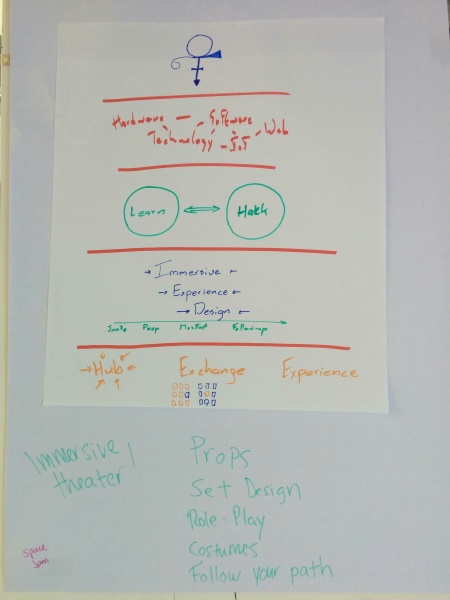 Hardware — Software
Technology - IoT - Web
Learn
Hack
Immersive
Experience
Design
Invite Prep Follow-up
Hub Exchange Experience
Immersive
theater!
Props
Set Design
Role-Play
Costumes
Follow your path
Space
Jam